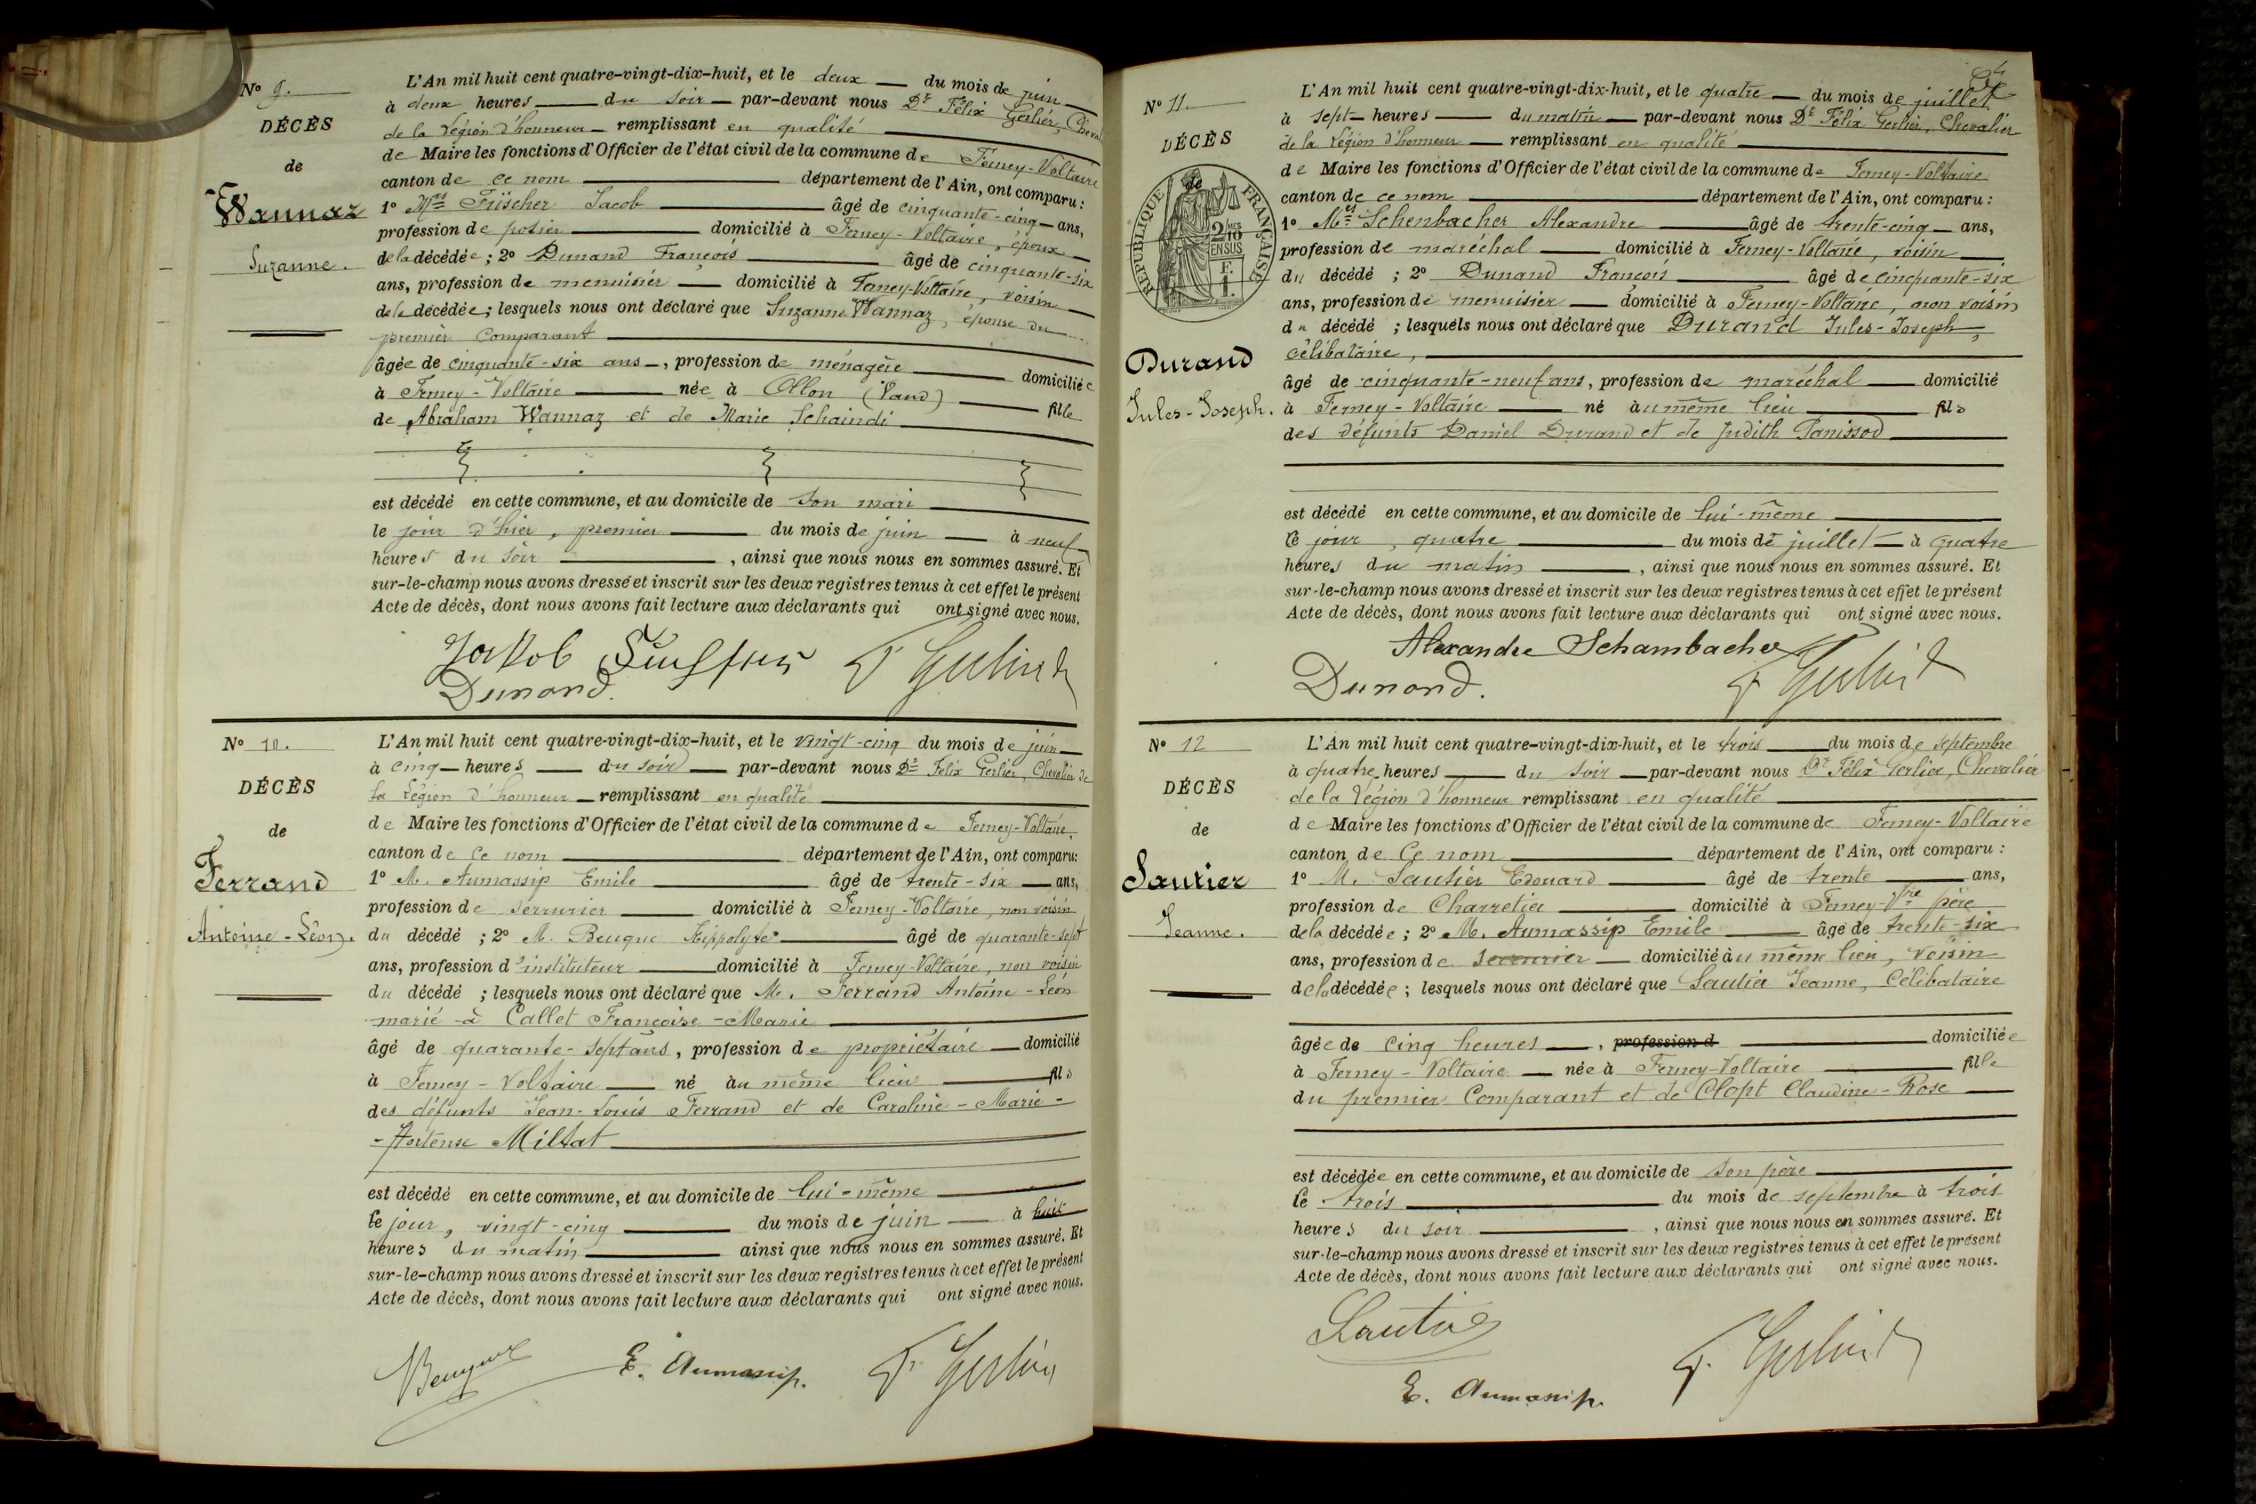 N° 9.
DÉCÈS
de
Wannaz
Suzanne.
L'An mil huit cent quatre-vingt-dix-huit, et le deux du mois de juin
à deux heures du soir par-devant nous Dr Félix Gerlier, Cheva
de la Légion d'honneur remplissant en qualité
de Maire les fonctions d'Officier de l'état civil de la commune de Ferney-Voltaire
canton de ce nom département de l'Ain, ont comparu :
1° Mrs Füscher Jacob âgé de cinquante-cinq ans,
profession de potier domicilié à Ferney-Voltaire, époux
de la décédée ; 2° Dunand François âgé de cinquante-six
ans, profession de menuisier domicilié à Ferney-Voltaire, voisin
de la décédée ; lesquels nous ont déclaré que Suzanne Wannaz, épouse du
premier comparant
âgée de cinquante-six ans, profession de ménagère domiciliée
à Ferney-Voltaire née à Ollon (Vaud) fille
de Abraham Wannaz et de Marie Schaindi
est décédé en cette commune, et au domicile de son mari
le jour d'hier, premier du mois de juin à neuf
heures du soir , ainsi que nous nous en sommes assuré. Et
sur-le-champ nous avons dressé et inscrit sur les deux registres tenus à cet effet le présent
Acte de décès, dont nous avons fait lecture aux déclarants qui ont signé avec nous.
Jakob
Dunand. F Gerlier
N° 10.
DÉCÈS
de
Ferrand
Antoine-Léon.
L'An mil huit cent quatre-vingt-dix-huit, et le vingt-cinq du mois de juin
à cinq heures du soir par-devant nous Dr Félix Gerlier, Chevalier de
la Légion d'honneur remplissant en qualité
de Maire les fonctions d'Officier de l'état civil de la commune de Ferney-Voltaire,
canton de ce nom département de l'Ain, ont comparu :
1° M. Aumassip Emile âgé de trente-six ans,
profession de serrurier domicilié à Ferney-Voltaire, non voisin
du décédé ; 2° M. Beuque Hippolyte âgé de quarante-sept
ans, profession d'instituteur domicilié à Ferney-Voltaire, non voisin
du décédé ; lesquels nous ont déclaré que M. Ferrand Antoine-Léon
marié à Callet Françoise-Marie
âgé de quarante-sept ans, profession de propriétaire domicilié
à Ferney-Voltaire né au même lieu fils
des défunts Jean-Louis Ferrand et de Caroline-Marie-
-Hortense Miltat
est décédé en cette commune, et au domicile de lui-même
le jour, vingt-cinq du mois de juin à huit
heures du matin ainsi que nous nous en sommes assuré. Et
sur-le-champ nous avons dressé et inscrit sur les deux registres tenus à cet effet le présent
Acte de décès, dont nous avons fait lecture aux déclarants qui ont signé avec nous.
Beuque E. Aumassip. F. Gerlier
N° 11.
DÉCÈS
de
RÉPUBLIQUE FRANÇAISE
2 MES
10
EN SUS
Durand
Jules-Joseph.
L'An mil huit cent quatre-vingt-dix-huit, et le quatre du mois de juillet
à sept heures du matin par-devant nous Dr Félix Gerlier, Chevalier
de la Légion d'honneur remplissant en qualité
de Maire les fonctions d'Officier de l'état civil de la commune de Ferney-Voltaire
canton de ce nom département de l'Ain, ont comparu :
1° Mrs Schenbacher Alexandre âgé de trente-cinq ans,
profession de maréchal domicilié à Ferney-Voltaire, voisin
du décédé ; 2° Dunand François âgé de cinquante-six
ans, profession de menuisier domicilié à Ferney-Voltaire, non voisin
du décédé ; lesquels nous ont déclaré que Durand Jules-Joseph,
célibataire,
âgé de cinquante-neuf ans, profession de maréchal domicilié
à Ferney-Voltaire né au même lieu fils
des défunts Daniel Durand et de Judith Panissod
est décédé en cette commune, et au domicile de lui-même
le jour, quatre du mois de juillet à quatre
heures du matin , ainsi que nous nous en sommes assuré. Et
sur-le-champ nous avons dressé et inscrit sur les deux registres tenus à cet effet le présent
Acte de décès, dont nous avons fait lecture aux déclarants qui ont signé avec nous.
Alexandre Schambacher
Dunand. F Gerlier
N° 12
DÉCÈS
de
Sautier
Jeanne.
L'An mil huit cent quatre-vingt-dix-huit, et le trois du mois de septembre
à quatre heures du soir par-devant nous Dr Félix Gerlier, Chevalier
de la Légion d'honneur remplissant en qualité
de Maire les fonctions d'Officier de l'état civil de la commune de Ferney-Voltaire
canton de Ce nom département de l'Ain, ont comparu :
1° M. Sautier Edouard âgé de trente ans,
profession de Charretier domicilié à Ferney-Vre père
de la décédée ; 2° M. Aumassip Emile âgé de trente-six
ans, profession de serrurier domicilié au même lieu, voisin
de la décédée ; lesquels nous ont déclaré que Sautier Jeanne, Célibataire
âgée de cinq heures , profession d domiciliée
à Ferney-Voltaire née à Ferney-Voltaire fille
du premier Comparant et de Clopt Claudine-Rose
est décédée en cette commune, et au domicile de son père
le trois du mois de septembre à trois
heures du soir , ainsi que nous nous en sommes assuré. Et
sur-le-champ nous avons dressé et inscrit sur les deux registres tenus à cet effet le présent
Acte de décès, dont nous avons fait lecture aux déclarants qui ont signé avec nous.
Sautier
E. Aumassip. F. Gerlier